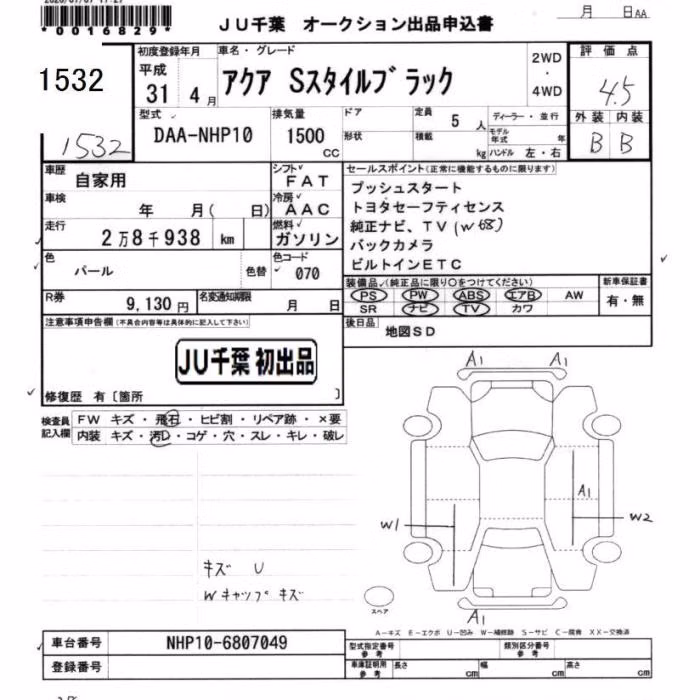 *0016829*
JU千葉 オークション出品申込書
月 日AA
1532
1532
初度登録年月
平成
31 4月
車名・グレード
アクア Sスタイルブラック
2WD
・
4WD
評価点
4.5
外装 内装
B B
型式
DAA-NHP10
排気量
1500
CC
ドア
形状
定員
5 人
積載
kg
ディーラー・並行
モデル年式 年
ハンドル 左・右
車歴
自家用
車検
年 月( 日)
走行
2万8千938 km
色
パール
色替
シフト
FAT
冷房
AAC
燃料
ガソリン
色コード
070
R券
9,130円
名変通知期限
月 日
セールスポイント(正常に機能するものに限ります)
プッシュスタート
トヨタセーフティセンス
純正ナビ、TV(W68)
バックカメラ
ビルトインETC
装備品(純正品に限り○をつけてください)
PS PW ABS エアB AW
SR ナビ TV カワ
新車保証書
有・無
後日品
地図SD
注意事項申告欄(不具合内容等は具体的に記入して下さい)
JU千葉 初出品
修復歴 有〔箇所 〕
検査員記入欄
FW キズ・飛石・ヒビ割・リペア跡・×要
内装 キズ・汚レ・コゲ・穴・スレ・キレ・破レ
A1 A1
A1
W1 W2
A1
キズ U
Wキャップキズ
スペア
A-キズ E-エクボ U-凹み W-補修跡 S-サビ C-腐食 XX-交換済
車台番号
NHP10-6807049
登録番号
型式指定番号
参考
類別区分番号
参考
車庫証明用
参考
長さ cm
幅 cm
高さ cm